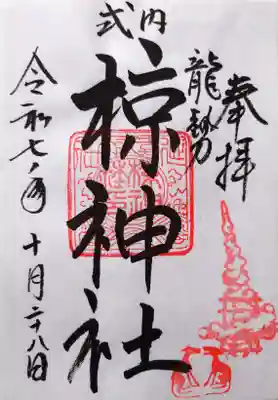 奉拝
龍勢
式内
椋神社
令和七年十月二十八日